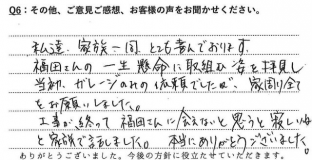 Q6：その他、ご意見ご感想、お客様の声をお聞かせください。
私達、家族一同とても喜んでおります。
福田さんの一生懸命に取組む姿を拝見し
当初、ガレージのみの依頼でしたが、家周り全て
をお願いしました。
工事が終って福田さんに会えないと思うと寂しいね
と家族で話しました。本当にありがとうございました。
ありがとうございました。今後の方針に役立たせていただきます。